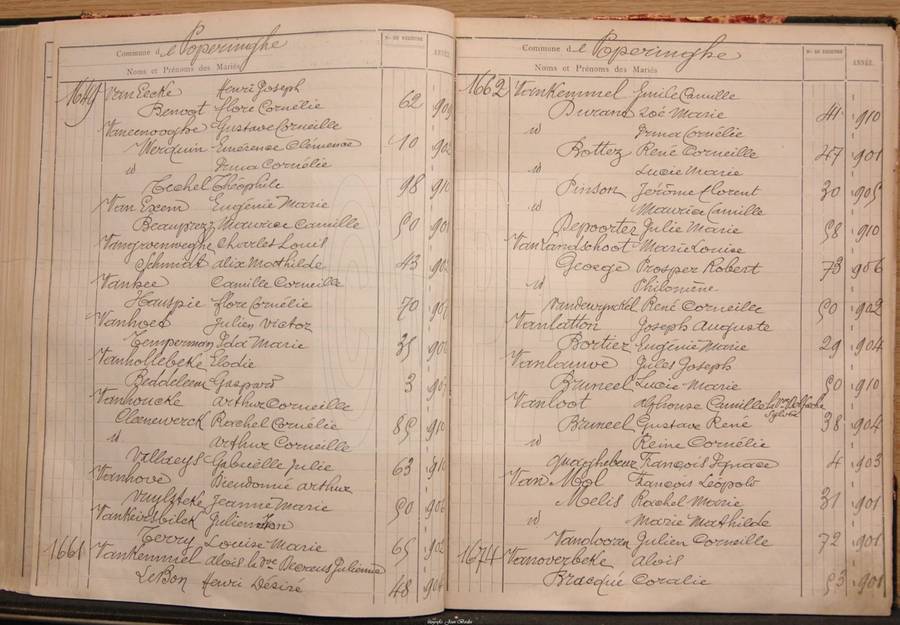 Commune de Poperinghe
Nos DE REGISTRE
ANNÉE
Noms et Prénoms des Mariés
1649 Van Eecke Henri Joseph
Benoot Flore Cornélie 62 90
Gustave Corneille
Werquin Emérence Clemence 10 902
id Irma Cornélie
Techel Théophile 98 910
Van Exem Eugénie Marie
Beauprez Maurice Camille 50 90
Vangroenweghe Charles Louis
Schmidt Alix Mathilde 43 90
Vanhee Camille Corneille
Hauspie Flore Cornélie 70 90
Vanhoed Julien Victor
Temperman Ida Marie 35 90
Vanhollebeke Elodie
Beddeleem Gaspard 3 90
Vanhoucke Arthur Corneille
Claenewerck Rachel Cornélie 85 910
id Arthur Corneille
Villaeys Gabrielle Julie 63 910
Vanhove Dieudonné Arthur
Vuylsteke Jeanne Marie 50 90
Vankeirsbilck Julien
Terry Louise Marie 65 902
1661 Vankemmel Aloïs Julienne
LeBon Henri Désiré 48 90
Commune de Poperinghe
Nos DE REGISTRE
ANNÉE
Noms et Prénoms des Mariés
1662 Vankemmel Emile Camille
Durant Zoé Marie 41 910
id Irma Cornélie
Bottez René Corneille 47 901
id Lucie Marie
Pinson Jérôme Florent 30 905
id Maurice Camille
Depoorter Julie Marie 58 910
Vanlandschoot Marie Louise
George Prosper Robert 73 906
id Philomène
Vandewynckel René Corneille 50 902
Vanlatton Joseph Auguste
Bortier Eugénie Marie 29 904
Vanlauwe Jules Joseph
Bruneel Lucie Marie 50 910
Vanloot Alphonse Camille
Bruneel Gustave René 38 904
id Reine Cornélie
Quaghebeur François Ignace 4 903
Van Mol François Léopold
Melis Rachel Marie 31 901
id Marie Mathilde
Vandooren Julien Corneille 72 901
1674 Vanoverbeke Aloïs
Bracqué Coralie 53 901